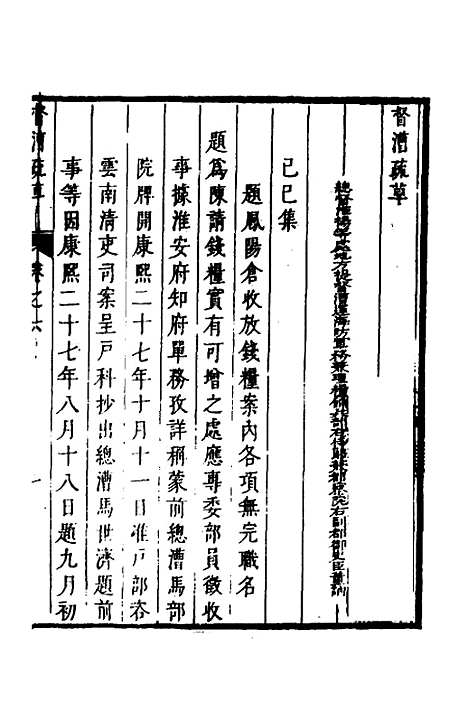 督漕疏草
總督淮揚等處地方提督漕運海防軍務兼理糧餉兵部右侍郎兼都察院右副都御史臣董訥
己巳集
題鳳陽倉收放錢糧案內各項無完職名
題爲陳請錢糧實有可增之處應專委部員徵收
事據淮安府知府單務孜詳稱蒙前總漕馬部
院牌開康熙二十七年十月十一日准戶部咨
雲南清吏司案呈戶科抄出總漕馬世濟題前
事等因康熙二十七年八月十八日題九月初
督漕疏草
卷之六
一